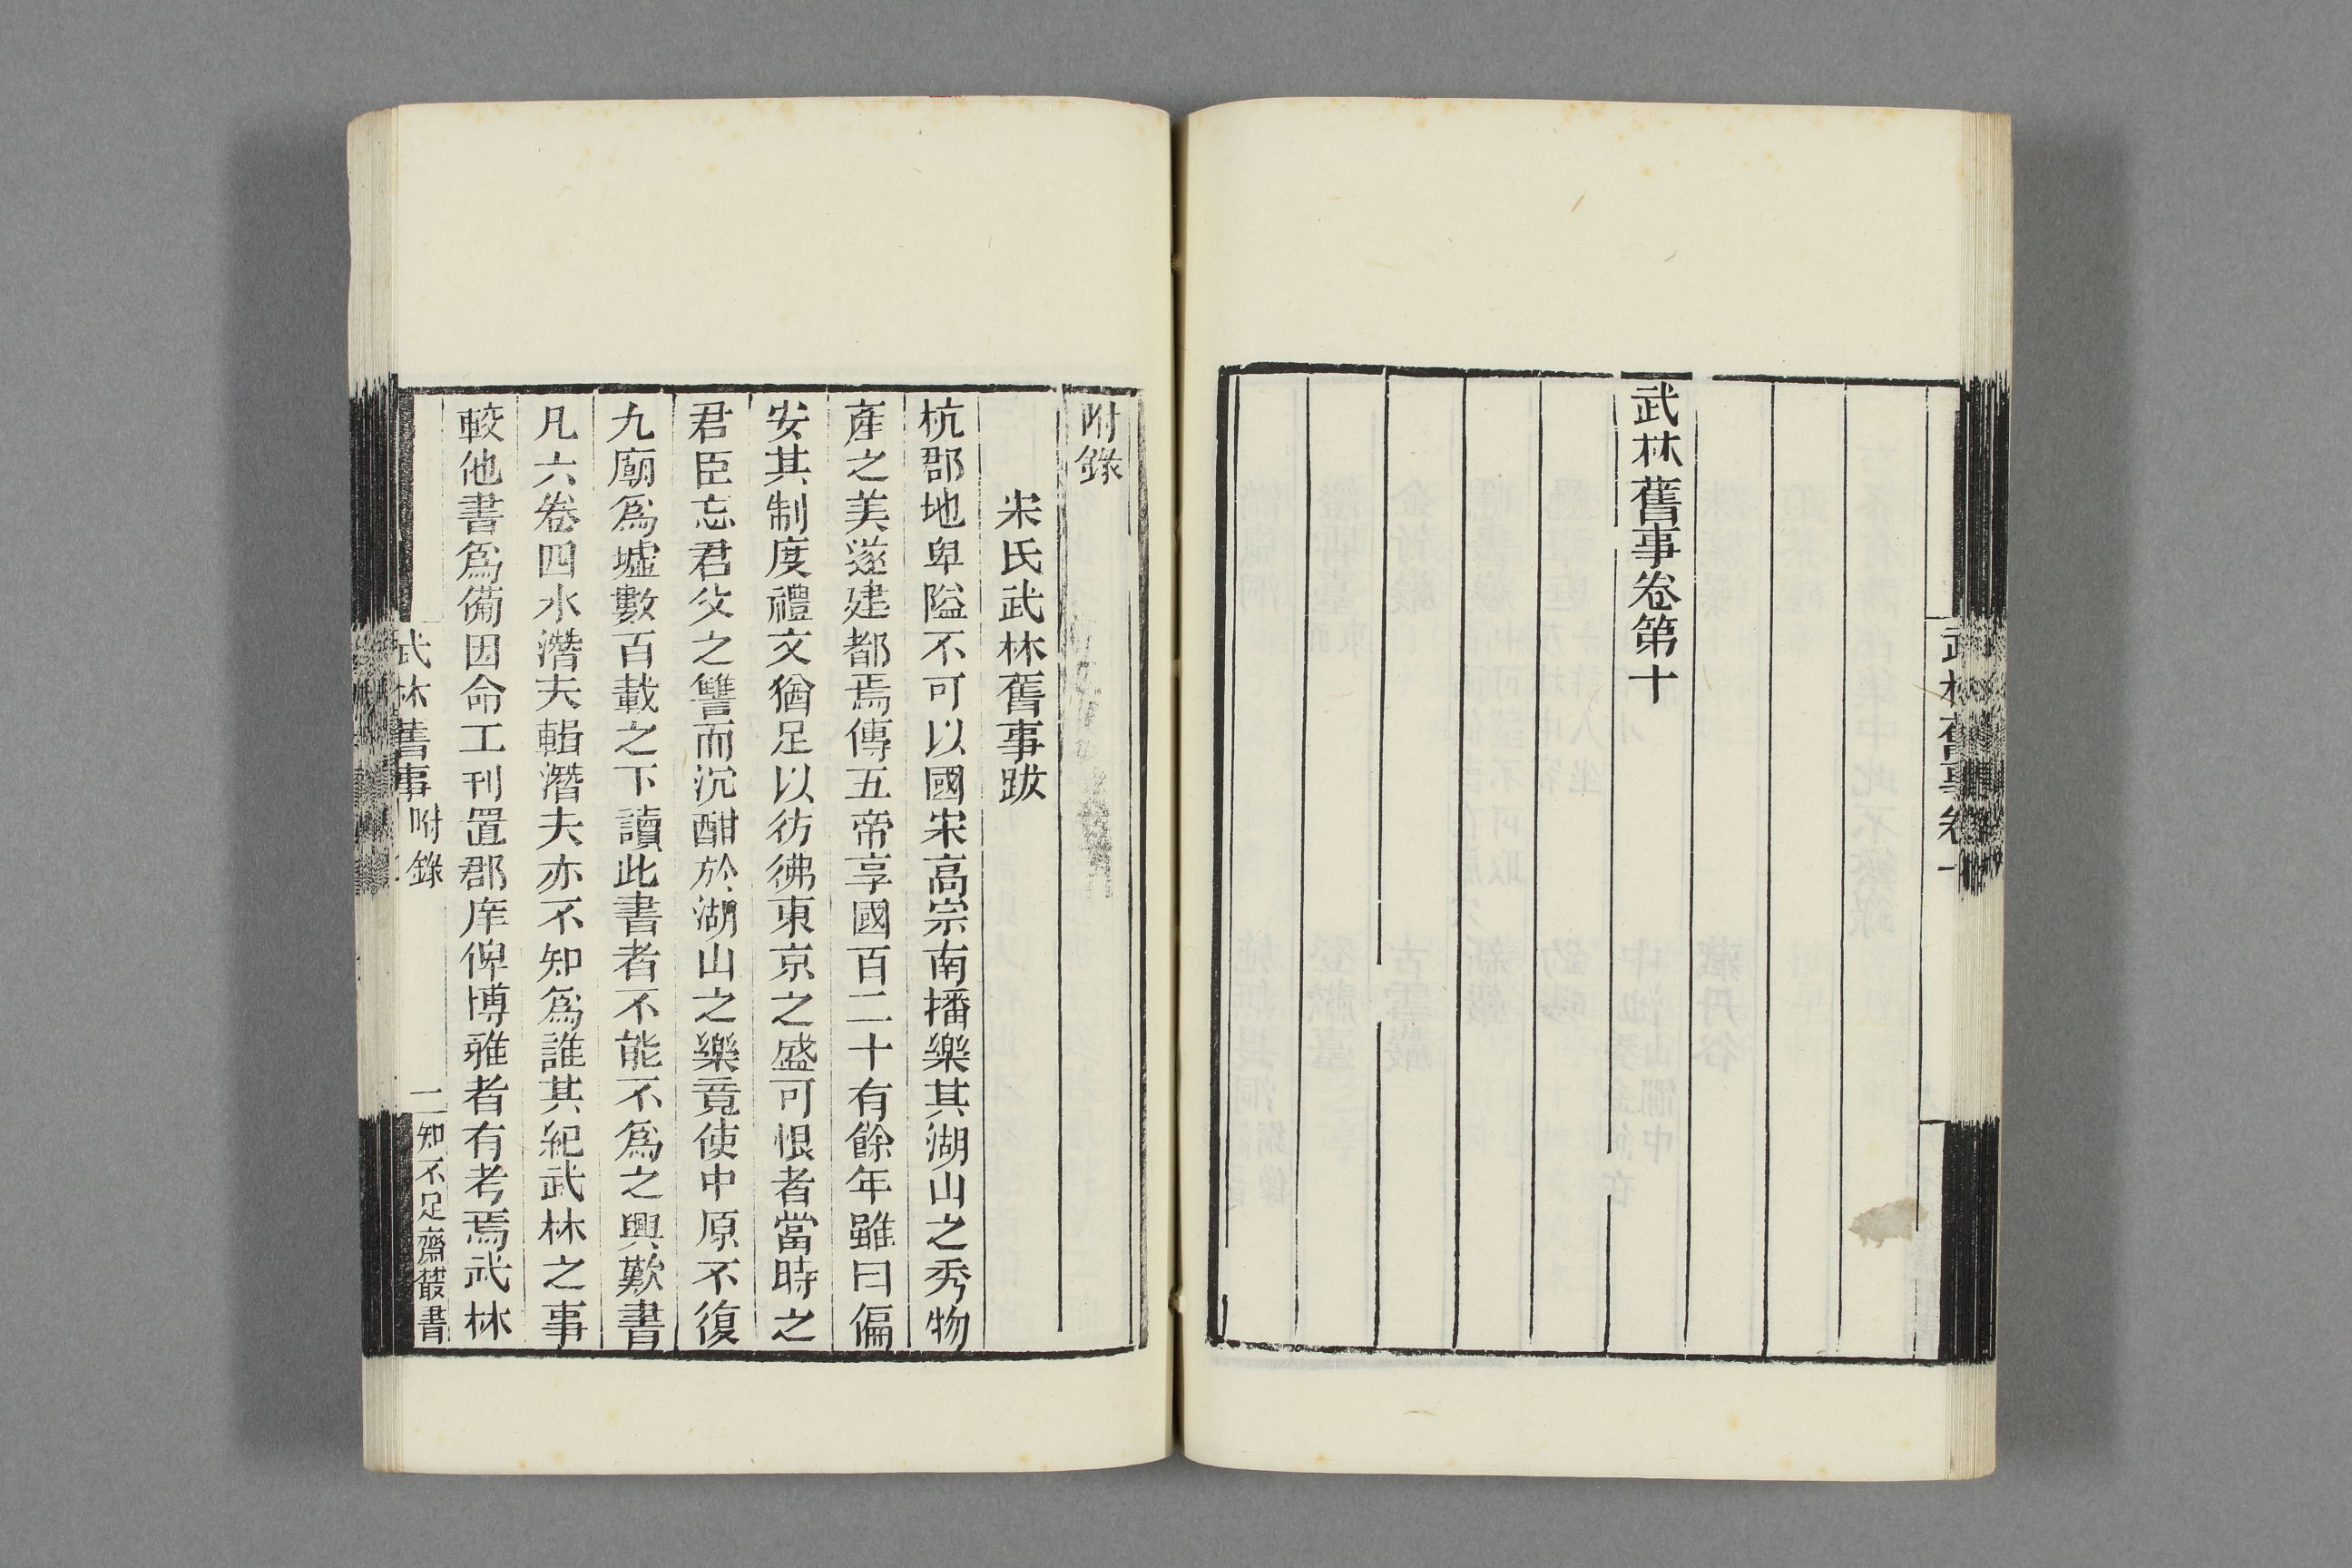 武林舊事卷第十
武林舊事卷十
附錄
宋氏武林舊事跋
杭郡地卑隘不可以國宋高宗南播樂其湖山之秀物
產之美遂建都焉傳五帝享國百二十有餘年雖曰偏
安其制度禮文猶足以彷彿東京之盛可恨者當時之
君臣忘君父之讐而沉酣於湖山之樂竟使中原不復
九廟爲墟數百載之下讀此書者不能不爲之興歎書
凡六卷四水潛夫輯潛夫亦不知爲誰其紀武林之事
較他書爲備因命工刊置郡庠俾博雅者有考焉武林
武林舊事附錄
二
知不足齋叢書